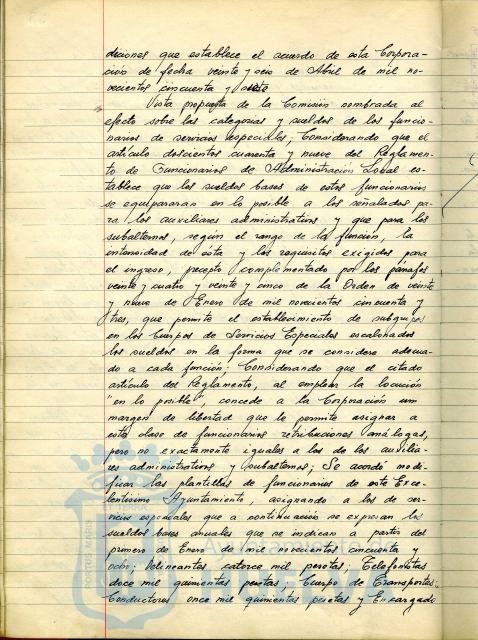 diciones que establece el acuerdo de esta Corpora-
ción de fecha veinte y seis de Abril de mil no-
vecientos cincuenta y siete
Vista propuesta de la Comisión nombrada al
efecto sobre las categorías y sueldos de los funcio-
narios de servicios especiales; Considerando que el
artículo doscientos cuarenta y nueve del Reglamen-
to de Funcionarios de Administración Local es-
tablece que los sueldos bases de estos funcionarios
se equipararan en lo posible a los señalados pa-
ra los auxiliares administrativos y que para los
subalternos, según el rango de la función, la
intensidad de ésta y los requisitos exigidos para
el ingreso, precepto complementado por los párrafos
veinte y cuatro y veinte y cinco de la Orden de veinte
y nueve de Enero de mil novecientos cincuenta y
tres, que permite el establecimiento de subgrupos
en los Cuerpos de Servicios Especiales escalonados
los sueldos en la forma que se considere adecua-
do a cada función; Considerando que el citado
artículo del Reglamento, al emplear la locución
"en lo posible", concede a la Corporación un
margen de libertad que le permite asignar a
esta clase de funcionarios retribuciones análogas,
pero no exactamente iguales a los de los auxilia-
res administrativos y subalternos; Se acordó modi-
ficar las plantillas de funcionarios de este Exce-
lentísimo Ayuntamiento, asignando a los de ser-
vicios especiales que a continuación se expresan los
sueldos bases anuales que se indican a partir del
primero de Enero de mil novecientos cincuenta y
ocho: Delineantes catorce mil pesetas; Telefonistas
doce mil quinientas pesetas; Cuerpo de Transportes:
Conductores once mil quinientas pesetas y Encargado